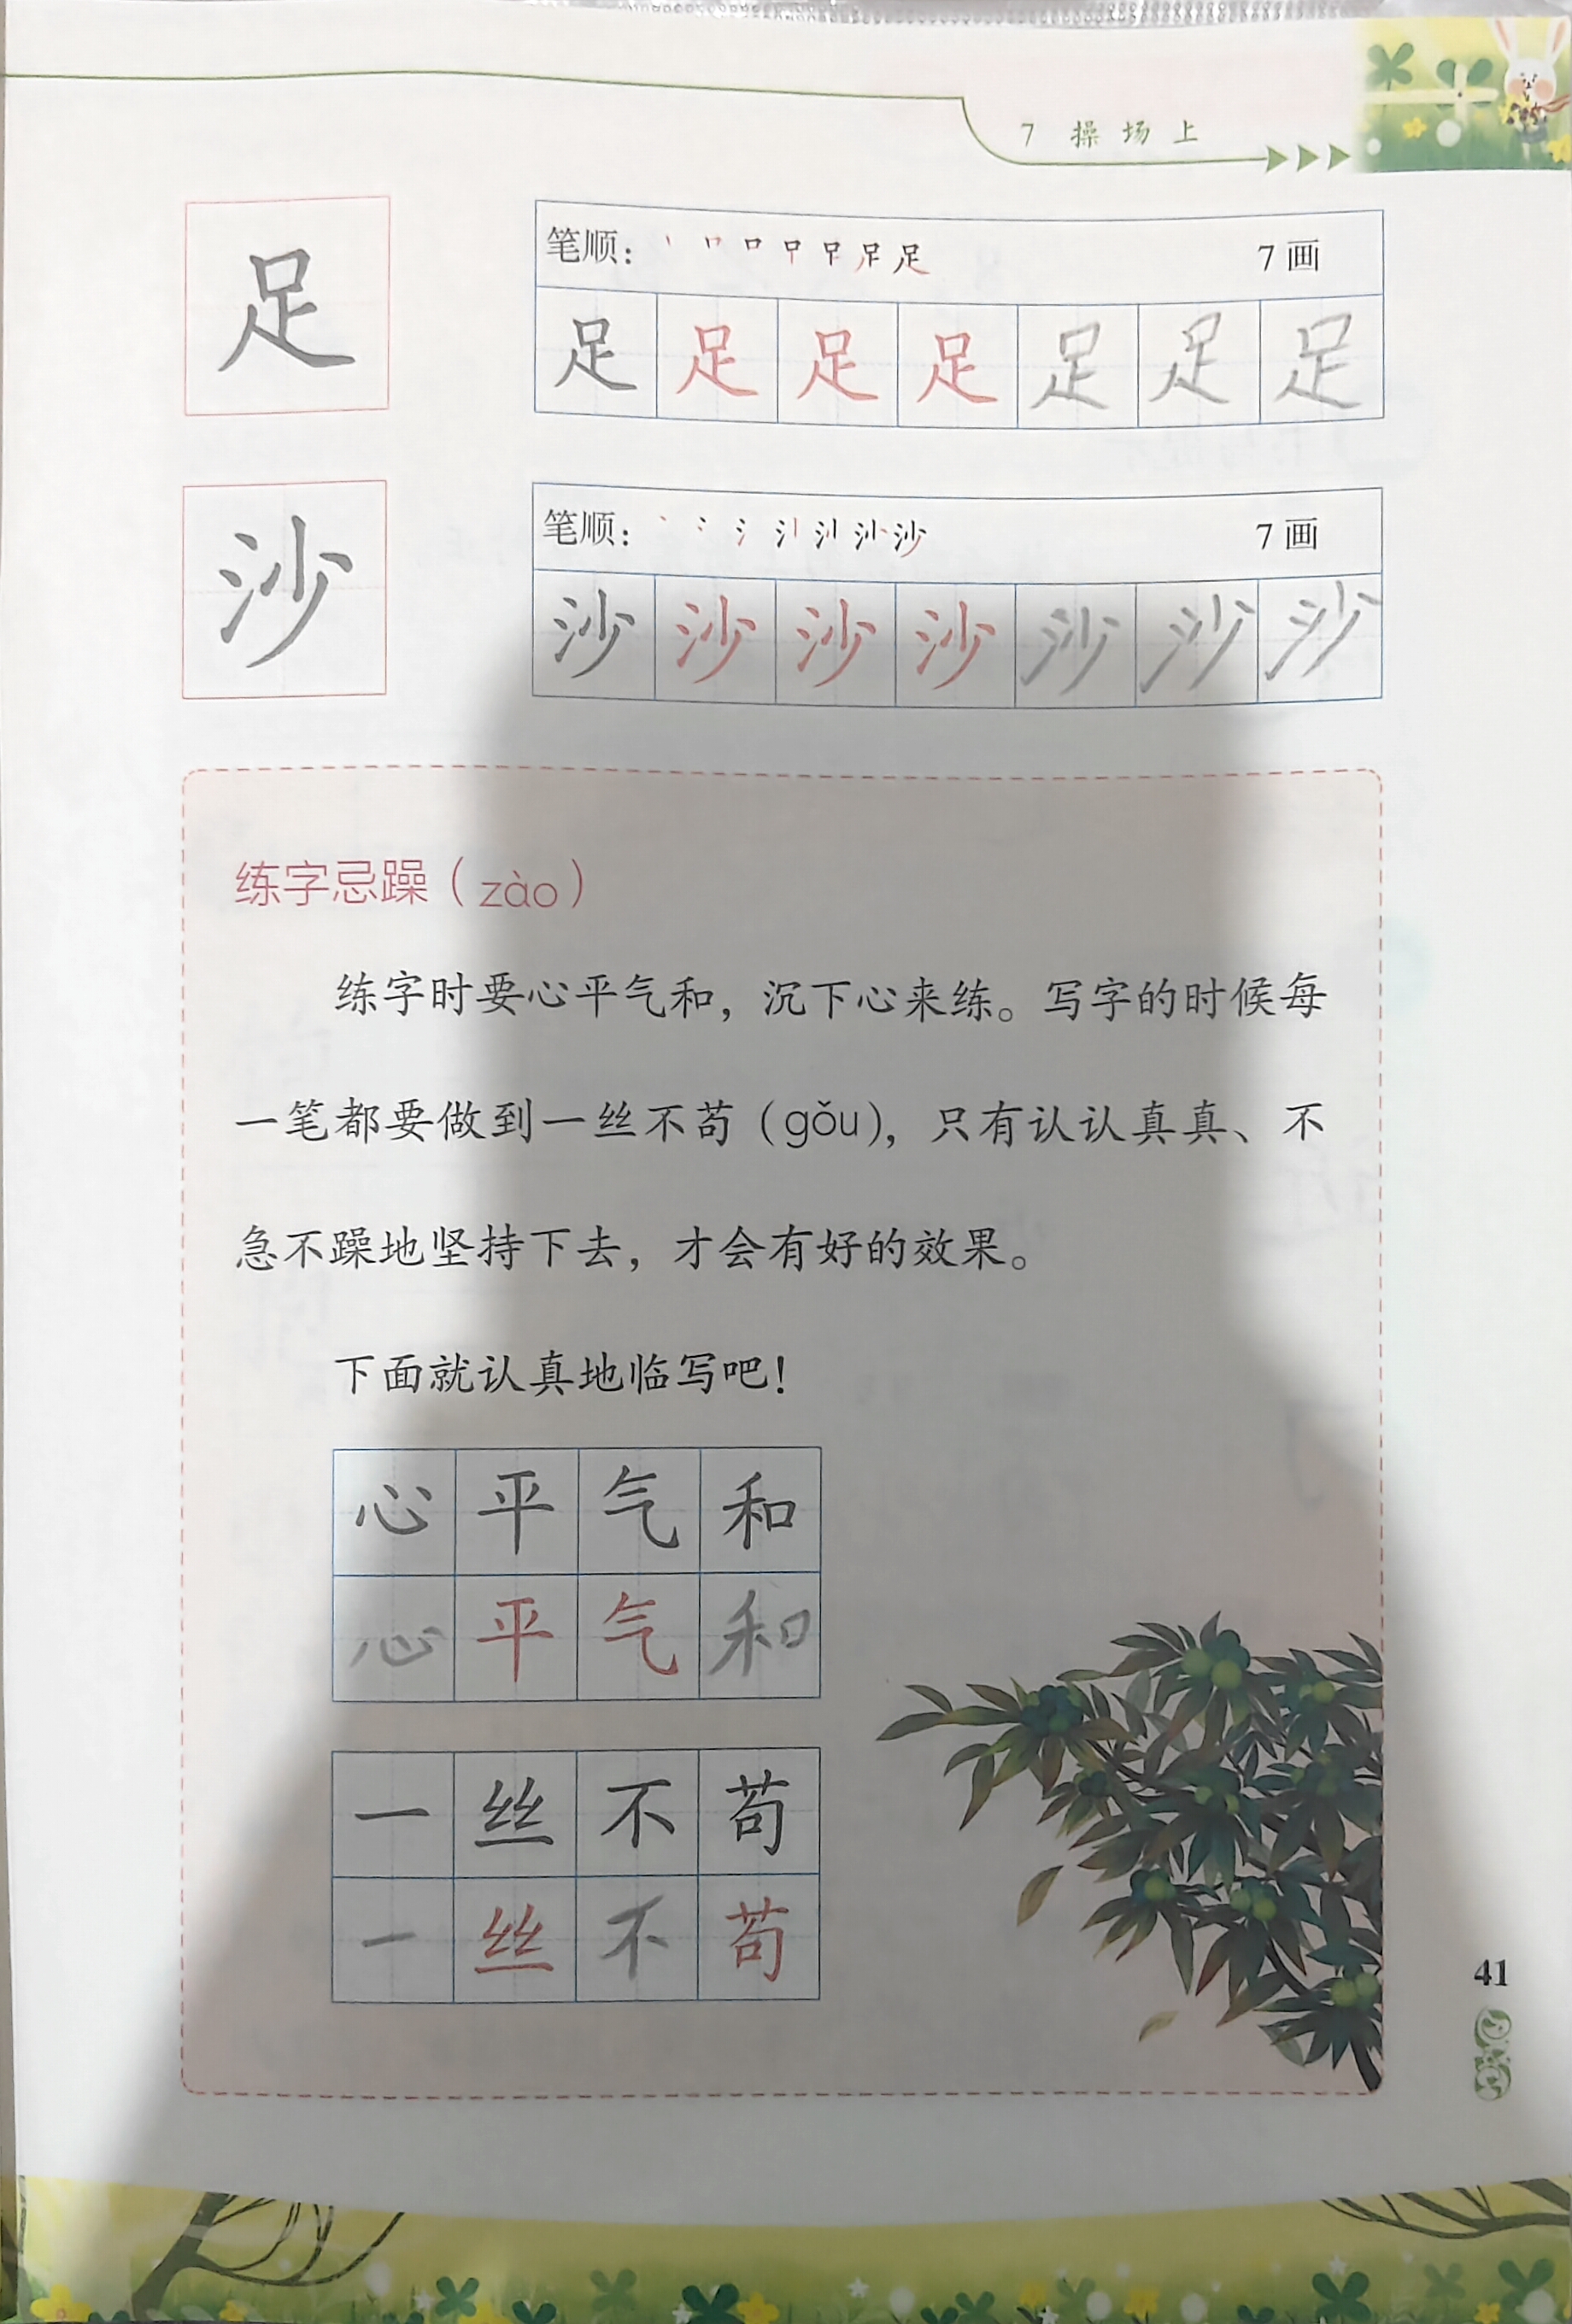 7 操场上
足
笔顺： 丨 𠃍 口 甲 𤴔 足 足 7画
足 足 足 足 足 足 足
沙
笔顺： 沙 7画
沙 沙 沙 沙 沙 沙 沙
练字忌躁（zào）
练字时要心平气和，沉下心来练。写字的时候每
一笔都要做到一丝不苟（gǒu），只有认认真真、不
急不躁地坚持下去，才会有好的效果。
下面就认真地临写吧！
心 平 气 和
心 平 气 和
一 丝 不 苟
一 丝 不 苟
41